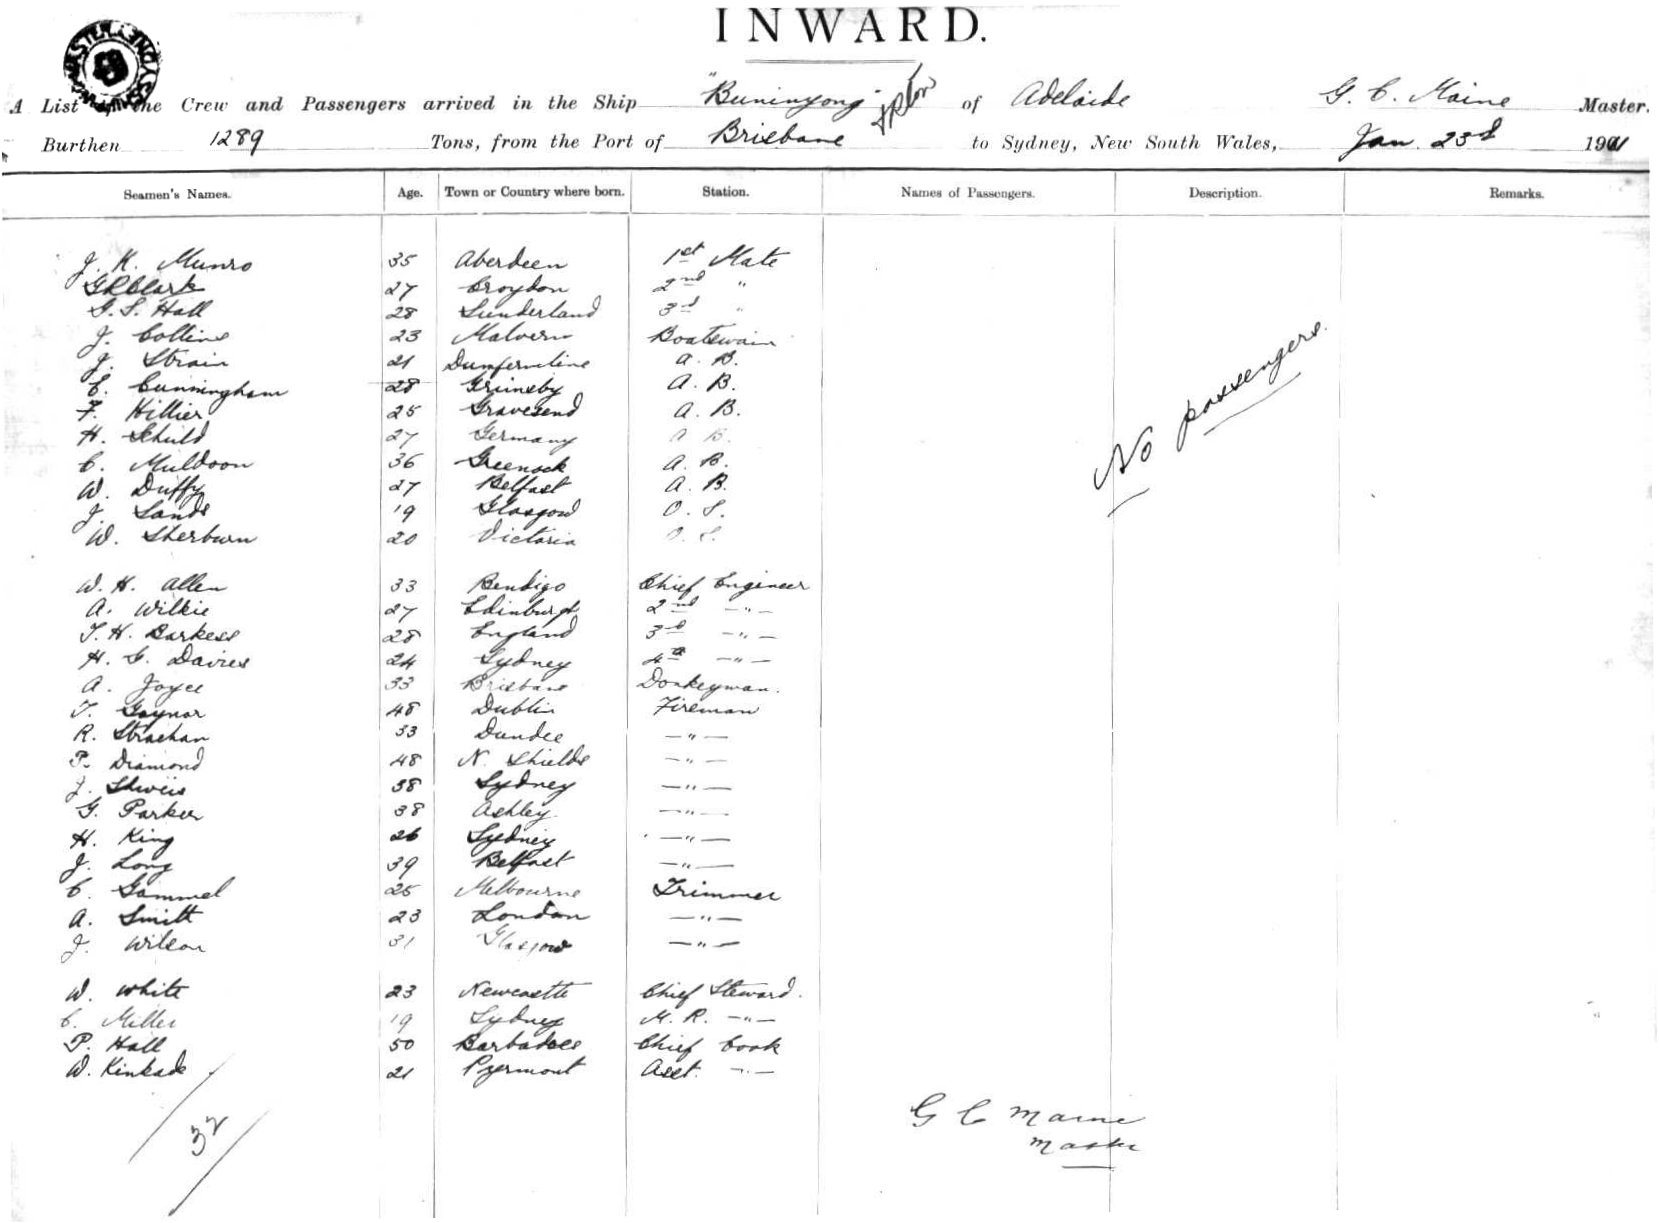 INWARD.
A List of the Crew and Passengers arrived in the Ship "Buninyong" of Adelaide G. C. Maine Master.
Burthen 1289 Tons, from the Port of Brisbane to Sydney, New South Wales, Jan. 23rd 1901
Seamen's Names. Age. Town or Country where born. Station. Names of Passengers. Description. Remarks.
J. K. Munro 35 Aberdeen 1st Mate
G R Clark 27 Croydon 2nd "
G. S. Hall 28 Sunderland 3rd "
J. Collins 23 Malvern Boatswain
J. Strain 21 Dunfermline A. B.
C. Cunningham 28 Grimsby A. B.
F. Hillier 25 Gravesend A. B.
H. Schuld 27 Germany A B.
C. Muldoon 36 Greenock A. B.
W. Duffy 27 Belfast A. B.
J. Sands 19 Glasgow O. S.
W. Sherburn 20 Victoria O. S.
No passengers.
W. H. Allen 33 Bendigo Chief Engineer
A. Wilkie 27 Edinburgh 2nd -"-
T. H. Barkess 28 England 3rd -"-
H. G. Davies 24 Sydney 4th -"-
A. Joyce 33 Brisbane Donkeyman.
T. Gaynor 48 Dublin Fireman
R. Strachan 33 Dundee -"-
P. Diamond 48 N. Shields -"-
J. 38 Sydney -"-
G. Parker 38 Ashley -"-
H. King 26 Sydney -"-
J. Long 39 Belfast -"-
C. Gammel 25 Melbourne Trimmer
A. Smith 23 London -"-
J. Wilson 31 Glasgow -"-
W. White 23 Newcastle Chief Steward.
C. Miller 19 Sydney M. R. -"-
P. Hall 50 Barbadoes Chief Cook
W. Kinkade 21 Pyermont Asst. -"-
32
G C Maine
Master